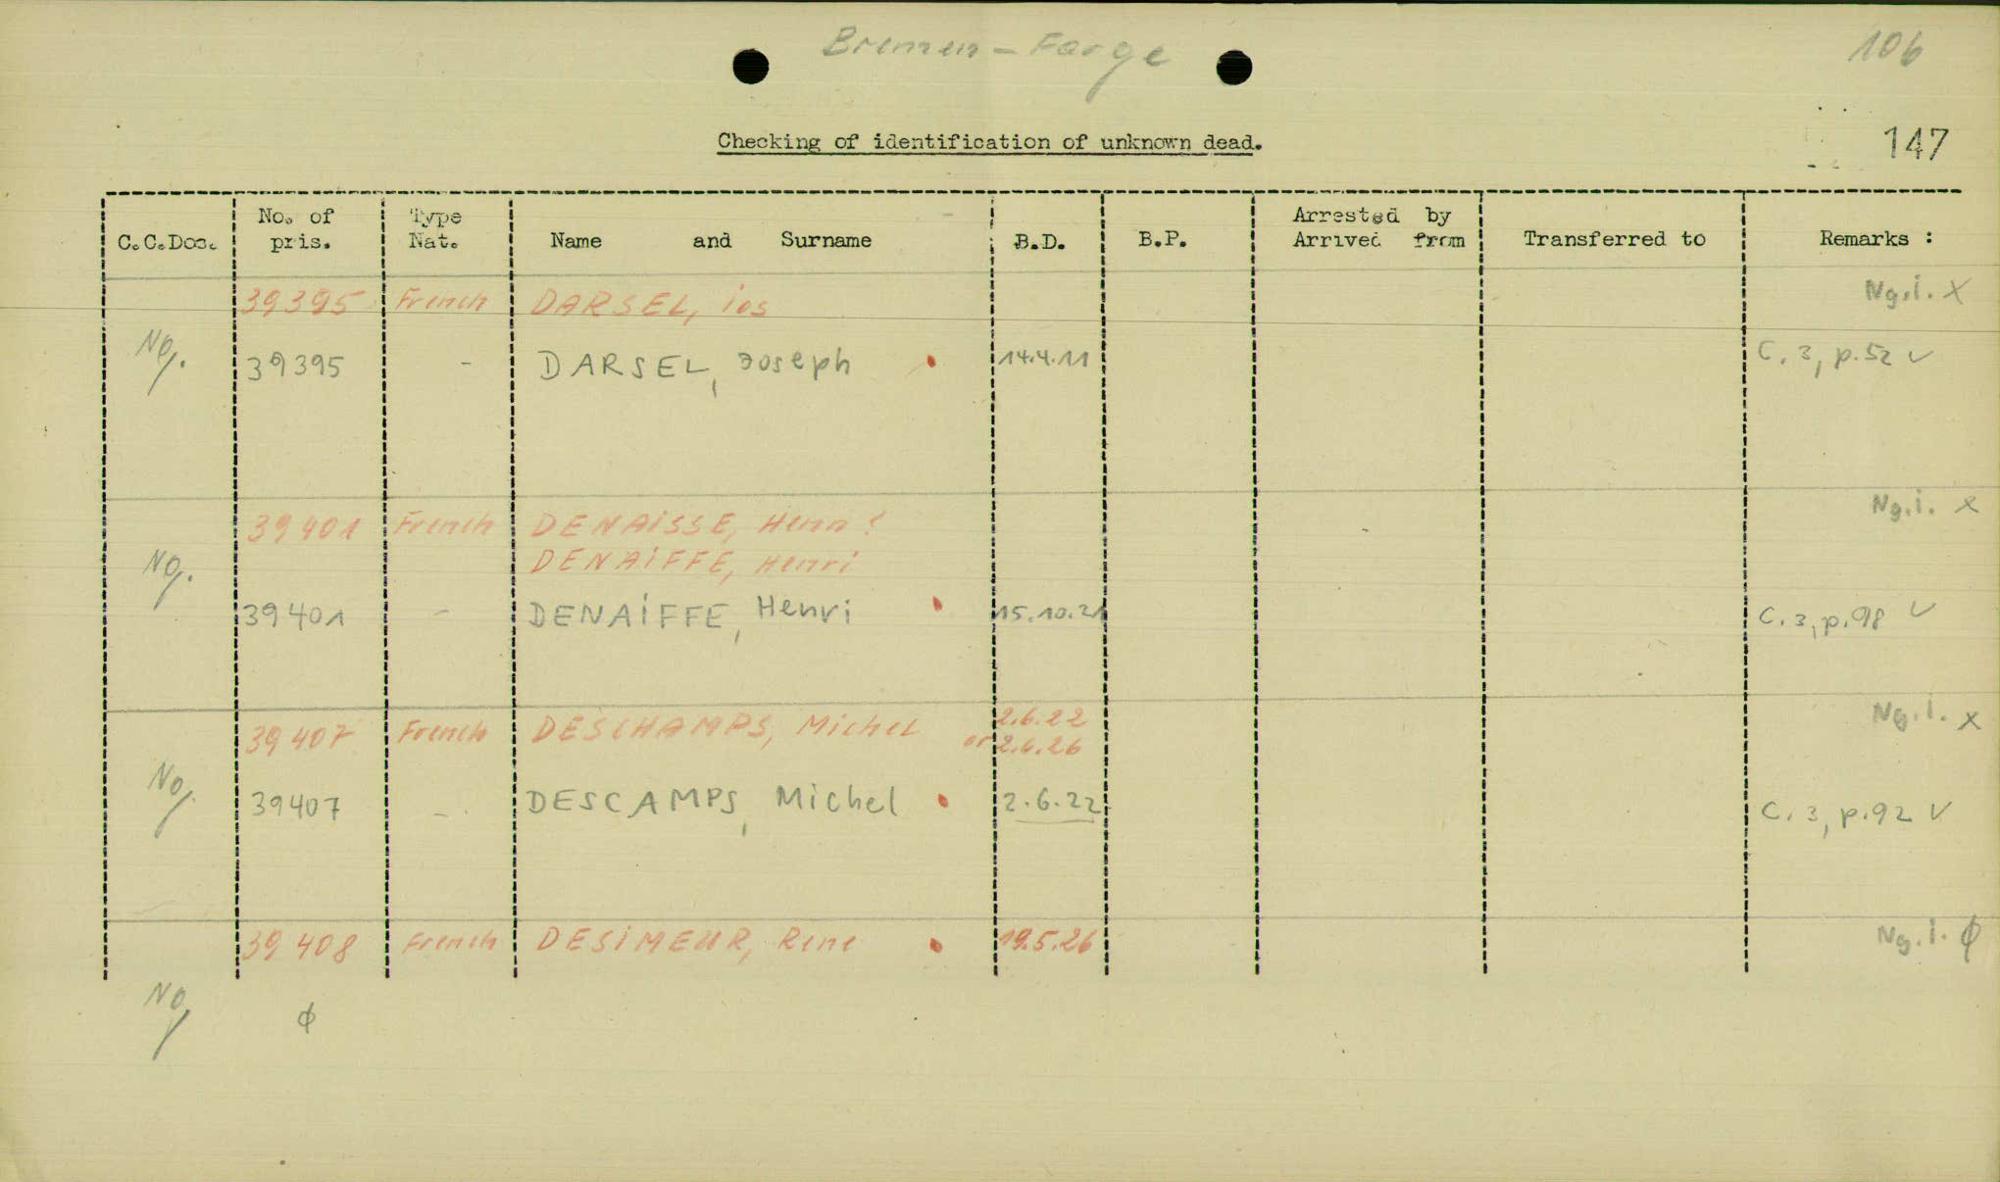 Bremen - Farge
106
Checking of identification of unknown dead.
147
C.C.Doc. No. of pris. Type Nat. Name and Surname B.D. B.P. Arrested by Arrived from Transferred to Remarks :
39395 French DARSEL, ios Ng.i. x
Ng. 39395 - DARSEL, Joseph 14.4.11 C. 3, p.52 v
39401 French DENAiSSE, Henri ? Ng.i. x
DENAiFFE, Henri
Ng. 39401 - DENAiFFE, Henri 15.10.21 C. 3, p.98 v
39407 French DESCHAMPS, Michel 2.6.22 Ng.i. x
or 2.6.26
Ng. 39407 - DESCAMPS, Michel 2.6.22 C. 3, p.92 v
39408 French DESiMEUR, Rene 19.5.26 Ng.i. ϕ
Ng ϕ